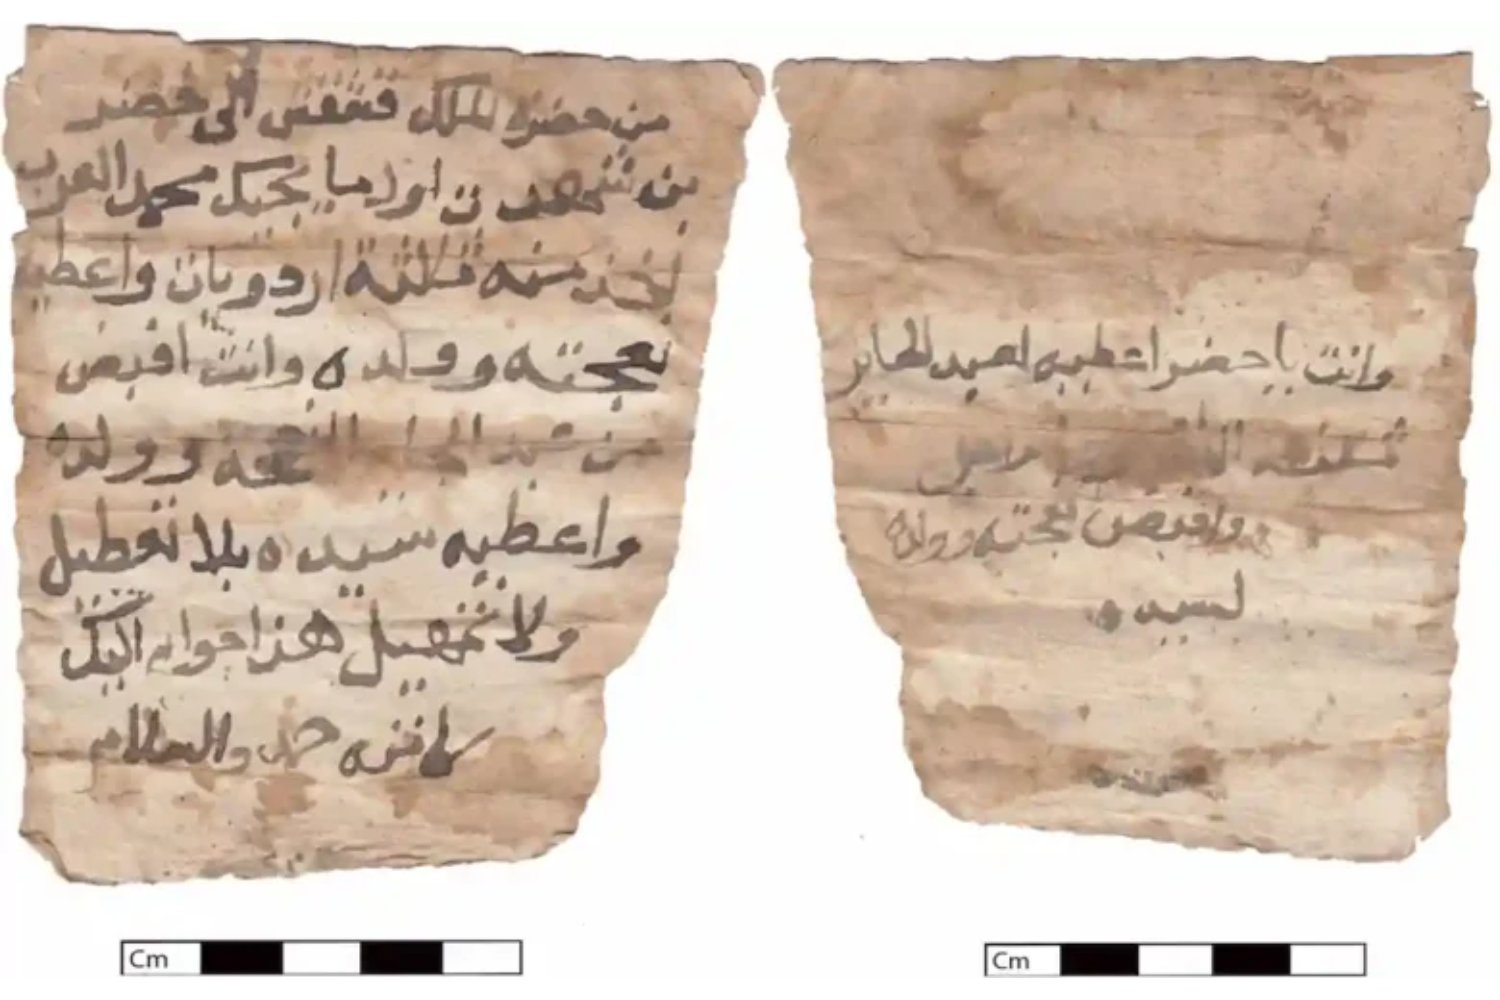 من حضرة الملك قشقش الى خضر
بن شهدت اول ما يجيك محمد العرب
تخذ منه ثلاثة اردويات واعطيه
نعجته وولده وانت اقبض
من عبد الجابر النعجة وولده
واعطيه سيده بلا تعطيل
ولا تمهيل هذا جوابي اليك
كاتبه حمد والسلام
وانت يا خضر اعطيه لعبد الجابر
ثلاثه
واقبض نعجته وولده
لسيده
Cm
Cm